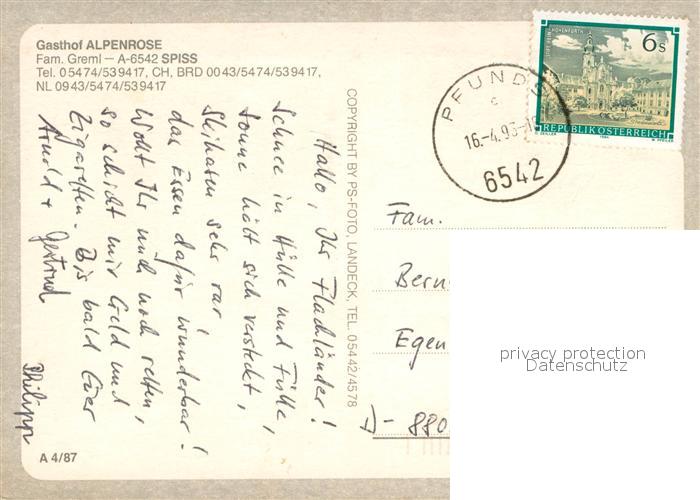 Gasthof ALPENROSE
Fam. Greml – A-6542 SPISS
Tel. 05474/539417, CH, BRD 0043/5474/539417,
NL 0943/5474/539417
Hallo, Ihr Flachländer!
Schnee in Hülle und Fülle,
Sonne hält sich versteckt,
Skihasen sehr rar,
das Essen dafür wunderbar!
Wollt Ihr mich noch retten,
so schickt mir Geld und
Zigaretten. Bis bald Euer
Arnold + Gertrud
Philipp
A 4/87
COPYRIGHT BY PS-FOTO, LANDECK, TEL. 05442/4578
PFUNDS
16.-4.93-
6542
6 S
REPUBLIK ÖSTERREICH
Fam.
Bern
Egen
D-880
privacy protection
Datenschutz